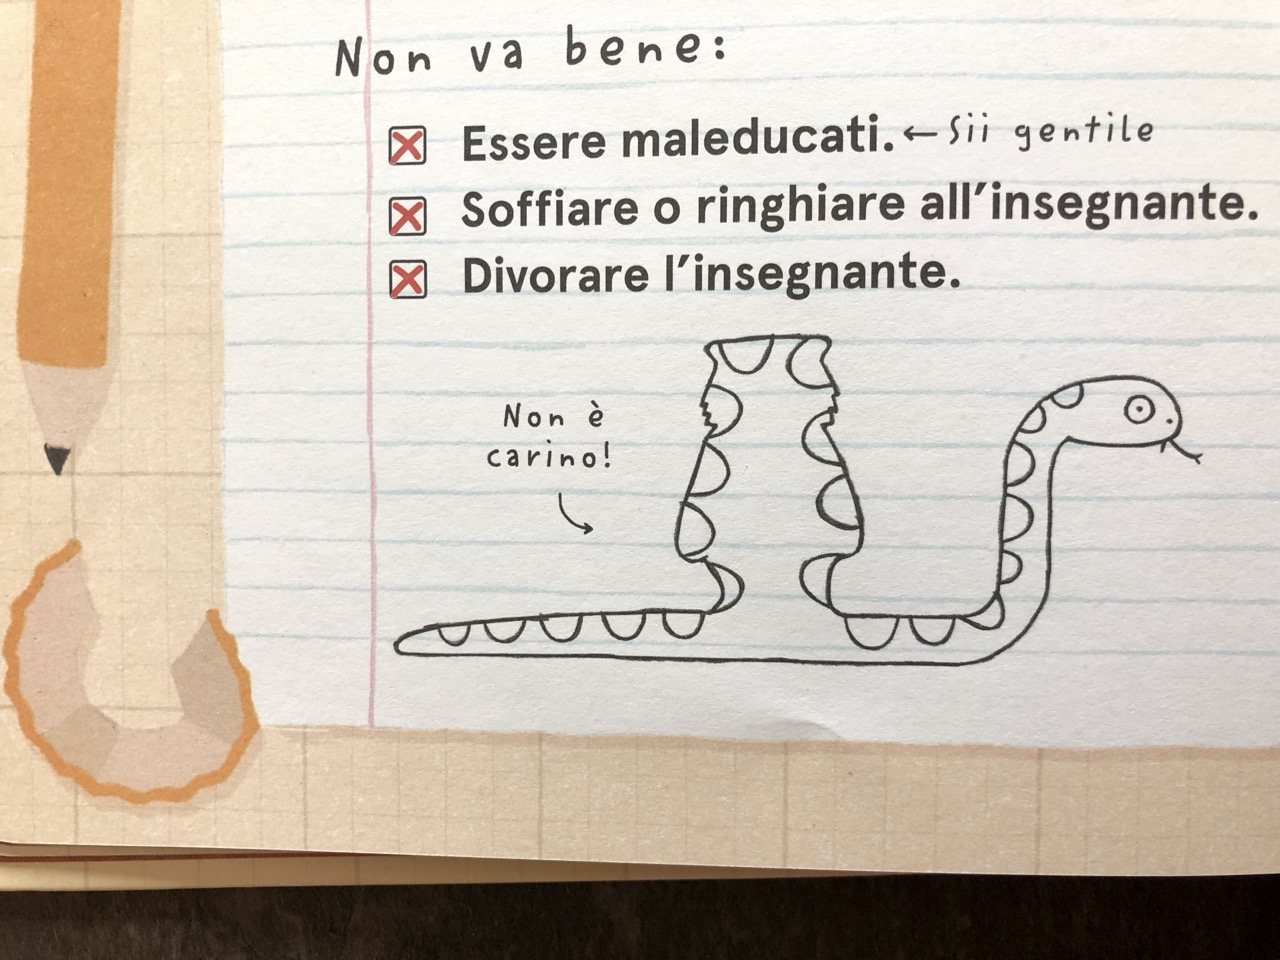 Non va bene:
Essere maleducati. ← Sii gentile
Soffiare o ringhiare all'insegnante.
Divorare l'insegnante.
Non è
carino!